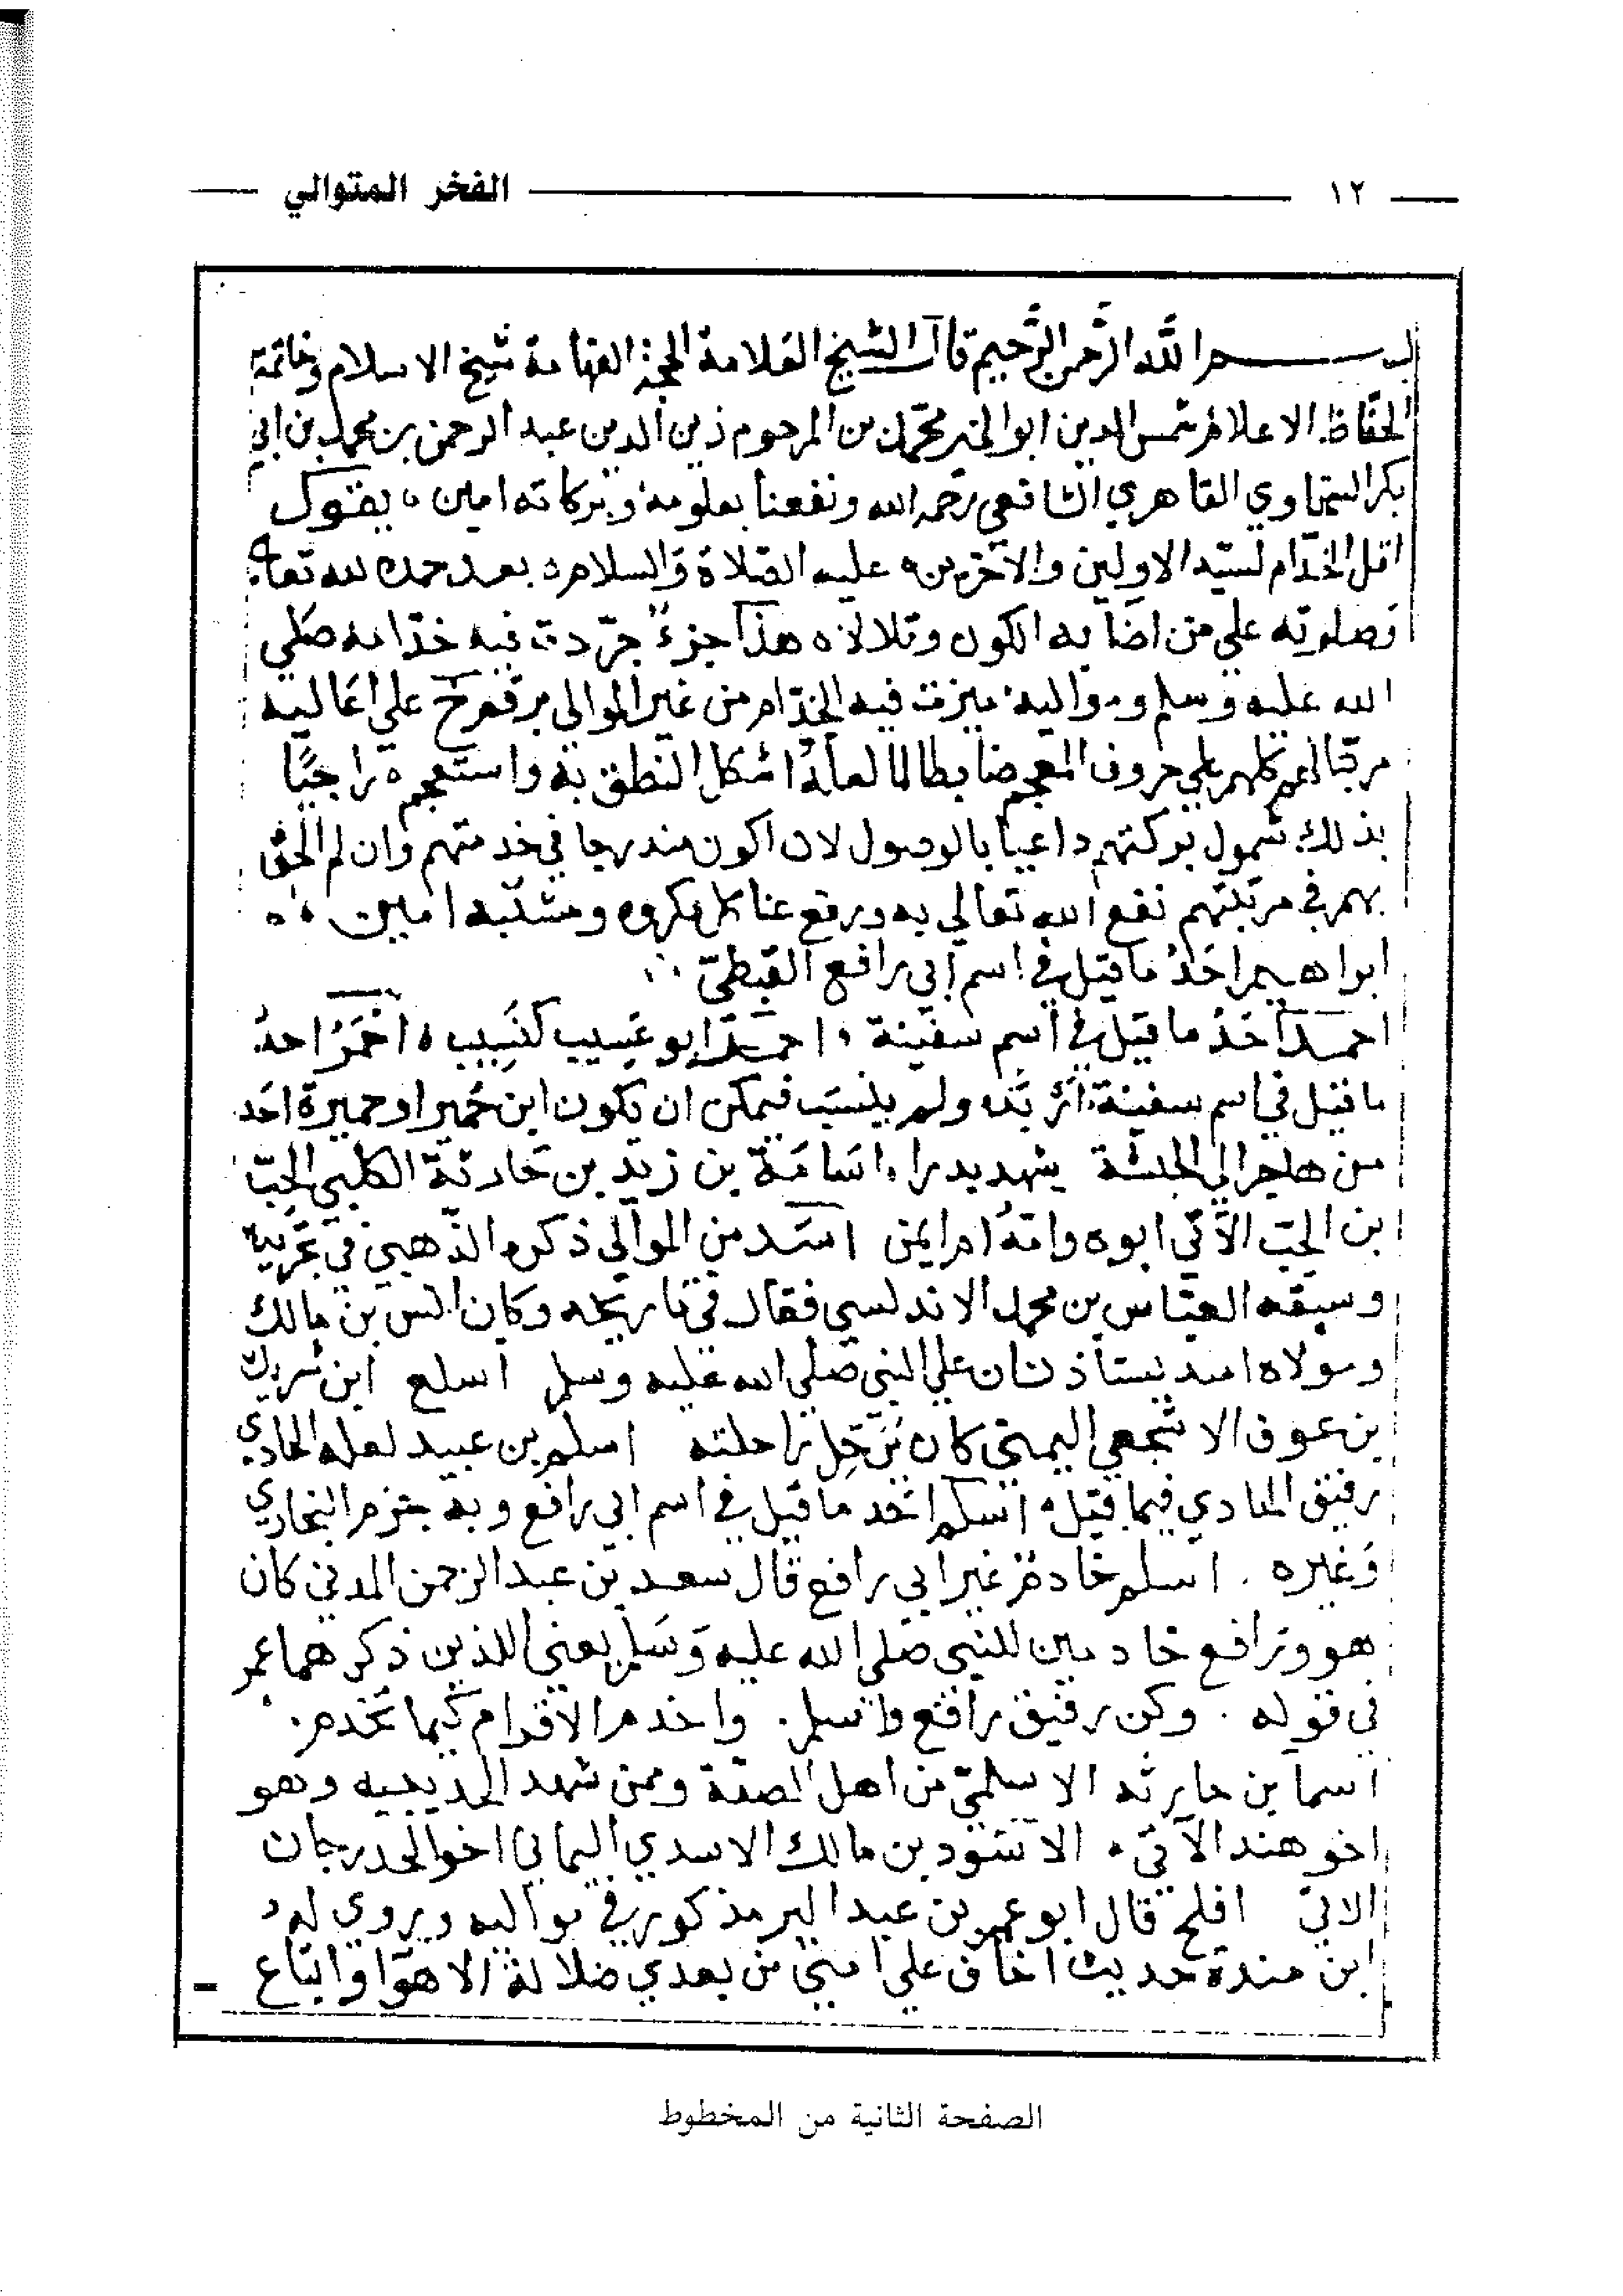 ١٢ الفخر المتوالي
بسم الله الرحمن الرحيم قال الشيخ العلامة الحجة الفهامة شيخ الاسلام وخاتمة
الحفاظ الاعلام شمس الدين ابو الخير محمد بن المرحوم زين الدين عبد الرحمن بن محمد بن ابي
بكر السخاوي القاهري الشافعي رحمه الله ونفعنا بعلومه وبركاته امين، يقول
اقل الخدام لسيد الاولين والآخرين، عليه الصلاة والسلام، بعد حمده لله تعالى
وصلوته على من اضا به الكون وتلالا، هذا جزءٌ جرّدت فيه خدّامه صلى
الله عليه وسلم ومواليه، ميزت فيه الخدّام من غير الموالي على اعاليه
مرتبا لهم كلهم على حروف المعجم ضابطا لما لعله اشكل النطق به واستعجم، راجيًا
بذلك شمول بركتهم داعيا بالوصول لان اكون مندرجا في خدمتهم وان لم الحق
بهم في مرتبتهم نفع الله تعالى به ورفع عنا كل مكروه ومشتبه امين،
ابراهيم احدُ ما قيل في اسم ابي رافع القبطيّ
احمد احدُ ما قيل في اسم سفينة، احمد ابو عَسِيب كنَسِيب، احمَرُ احدُ
ما قيل في اسم سفينة، اربَدُ ولم ينسب فيمكن ان يكون ابن حُمير او حميرة احد
من هاجر الى الحبشة يشهد بدرا، اسَامَة بن زيد بن حارثة الكلبي الحِبّ
بن الحِبّ الآتي ابوه وامّهُ ام ايمن اسَد من الموالي ذكره الذهبي في تجريده
وسبقه العبّاس بن محمد الاندلسي فقال في تاريخه وكان انس بن مالك
ومولاه اسد يستأذنان على النبي صلى الله عليه وسلم اسلع ابن شريك
بن عوف الاشجعي اليمني كان يُرَحِّل راحلته اسلم بن عبيد لعله الحادي
رفيق الهادي فيما قيل، اسلم احد ما قيل في اسم ابي رافع وبه جزم البخاري
وغيره. اسلم خادم غير ابي رافع قال سعد بن عبد الرحمن المدني كان
هو ورافع خادمين للنبي صلى الله عليه وسلم يعني اللذين ذكرهما عمر
في قوله. وكن رفيق رافع واسلم. واخدم الاقوام كيما تخدم.
اسما بن حارثه الاسلميّ من اهل الصفة وممن شهد الحديبيه وهو
اخو هند الآتي، الاسود بن مالك الاسدي اليماني اخو الحدرجان
الاتي افلح قال ابو عمر بن عبد البر مذكور في مواليه ويروي له
ابن مندة حديث اخاف على امتي من بعدي ضلالة الاهوا واتباع
الصفحة الثانية من المخطوط